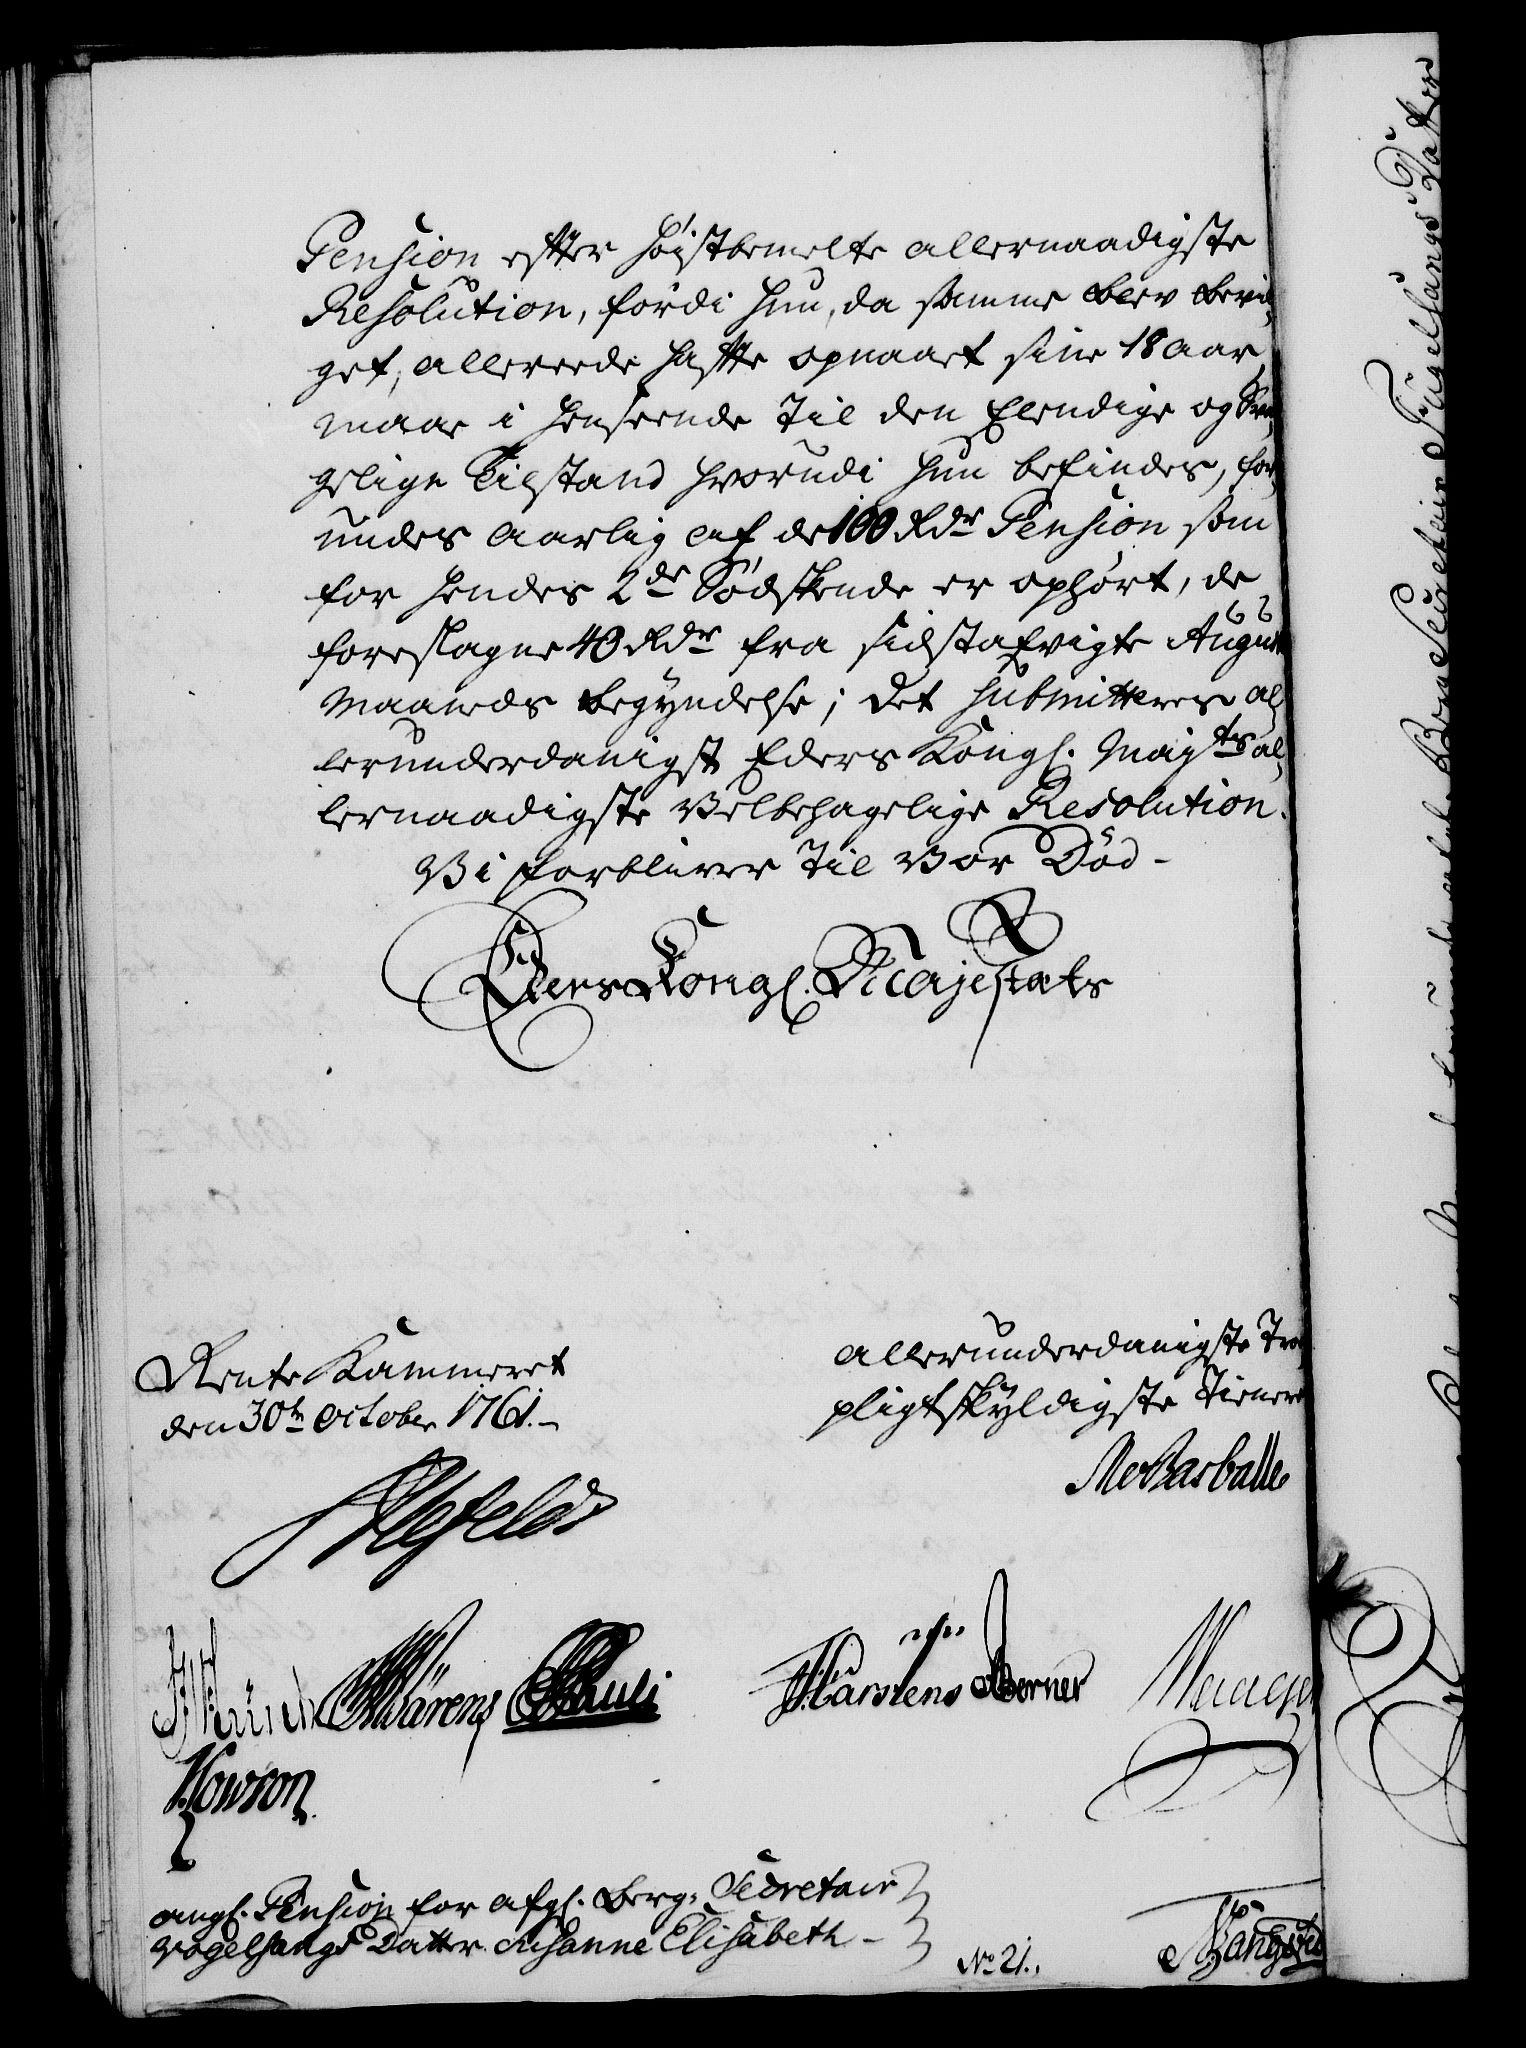 Pension efter höistbemelte allernaadigste
Resolution, fordi hun, da samme blev bevil-
get, allereede hafte opnaaet sine 18 aar,
maae i henseende til den Elendige og Svag-
gelige Tilstand hvorudi hun befindes, for-
undes aarlig af de 100 Rdr Pension som
for hendes 2de Södskende er ophört, de
foreslagne 40 Rdr fra sidstafvigte Augusti
Maaneds begyndelse; det submitteres al-
lerunderdanigst Eders Kongl. Majts al-
lernaadigste Velbehagelige Resolution.
Vi forbliver til Vor Död -
Eders Kongl. Majestæts
Rente Kammeret
den 30te October 1761.
allerunderdanigste Troe
pligtskyldigste Tienere
Ahlefeldt
Wärens Pauli
Carstens Berner
Kowson
angl. Pension for afgl. Berg-Secretair
Vogelsangs Datter Susanne Elisabeth -
No 21.